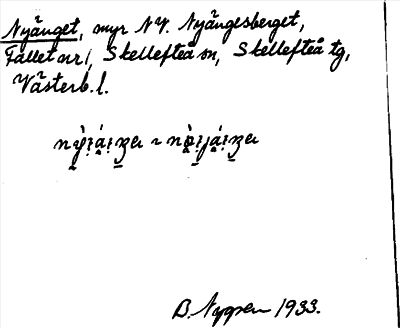 Nyänget, myr NV. Nyängesberget,
Fället nr 1, Skellefteå sn, Skellefteå tg,
Västerb. l.
B. Nygren 1933.